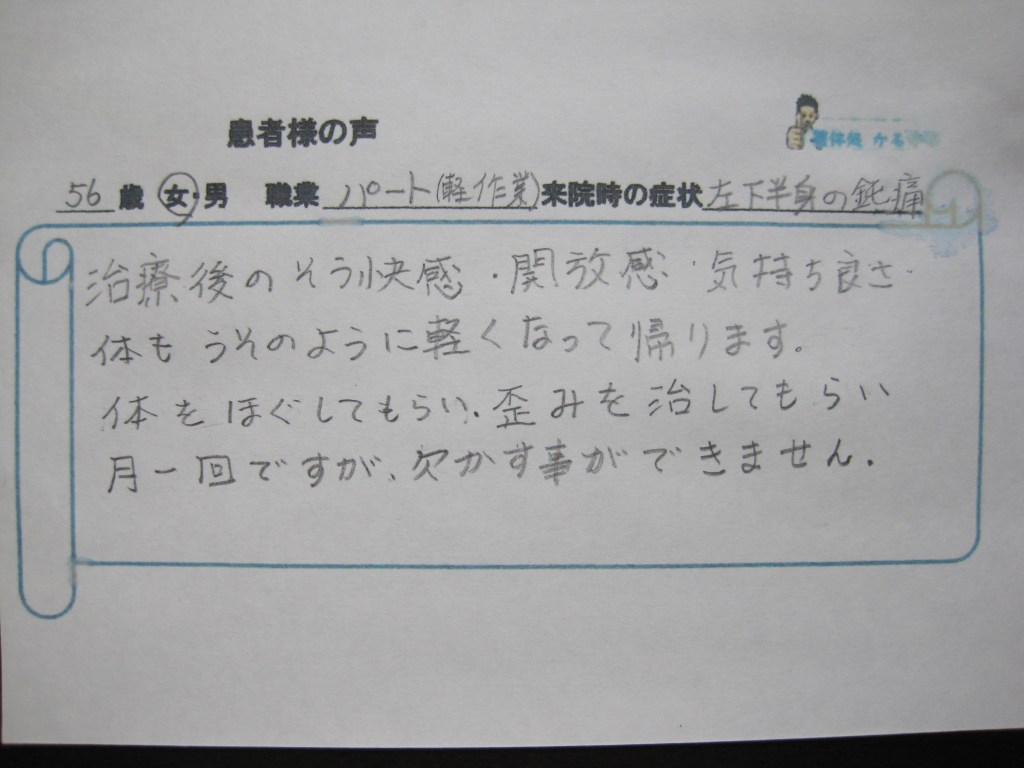 患者様の声
整体処 かるみ
56 歳 女・男 職業 パート(軽作業) 来院時の症状 左下半身の鈍痛
治療後のそう快感・開放感・気持ち良さ.
体もうそのように軽くなって帰ります。
体をほぐしてもらい、歪みを治してもらい
月一回ですが、欠かす事ができません.